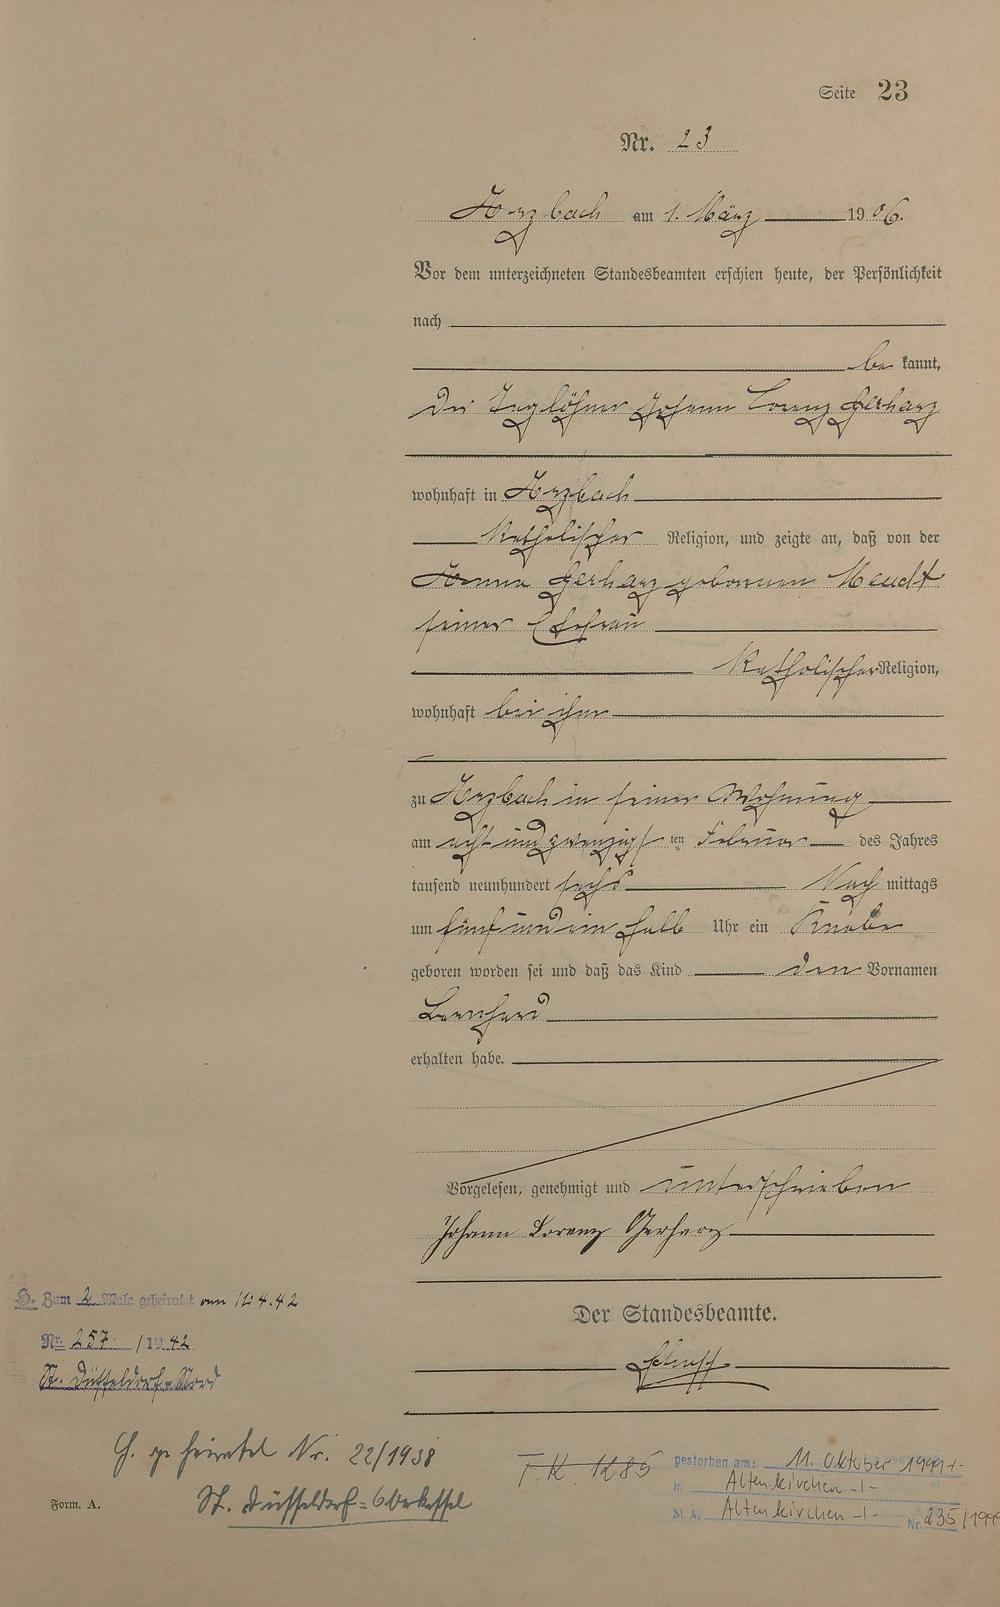 Seite 23
Nr. 23
Arzbach am 1. März 1906.
Vor dem unterzeichneten Standesbeamten erschien heute, der Persönlichkeit
nach
be kannt,
der Taglöhner Johann Lorenz Gerharz
wohnhaft in Arzbach
katholischer Religion, und zeigte an, daß von der
Anna Gerharz geborenen Meudt
seiner Ehefrau
katholischer Religion,
wohnhaft bei ihm
zu Arzbach in seiner Wohnung
am acht und zwanzigsten Februar des Jahres
tausend neunhundert sechs Nach mittags
um fünf und ein halb Uhr ein Knabe
geboren worden sei und daß das Kind den Vornamen
Bernhard
erhalten habe.
Vorgelesen, genehmigt und unterschrieben
Johann Lorenz Gerharz
Der Standesbeamte.
H. Zum 2 Male geheiratet am 11.4.42
Nr. 257 /1942
St. Düsseldorf-Nord
H. geheiratet Nr. 22/1938
St. Düsseldorf-Oberkassel
T.K. 1285
gestorben am: 11. Oktober 1999
in Altenkirchen
St. A. Altenkirchen
Nr. 235/1999
Form. A.